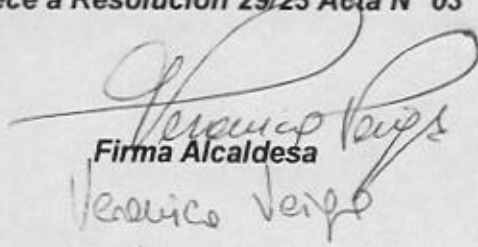 ece a Resolución 29/25 Acta N° 03
Veronica Veiga
Firma Alcaldesa
Veronica Veiga